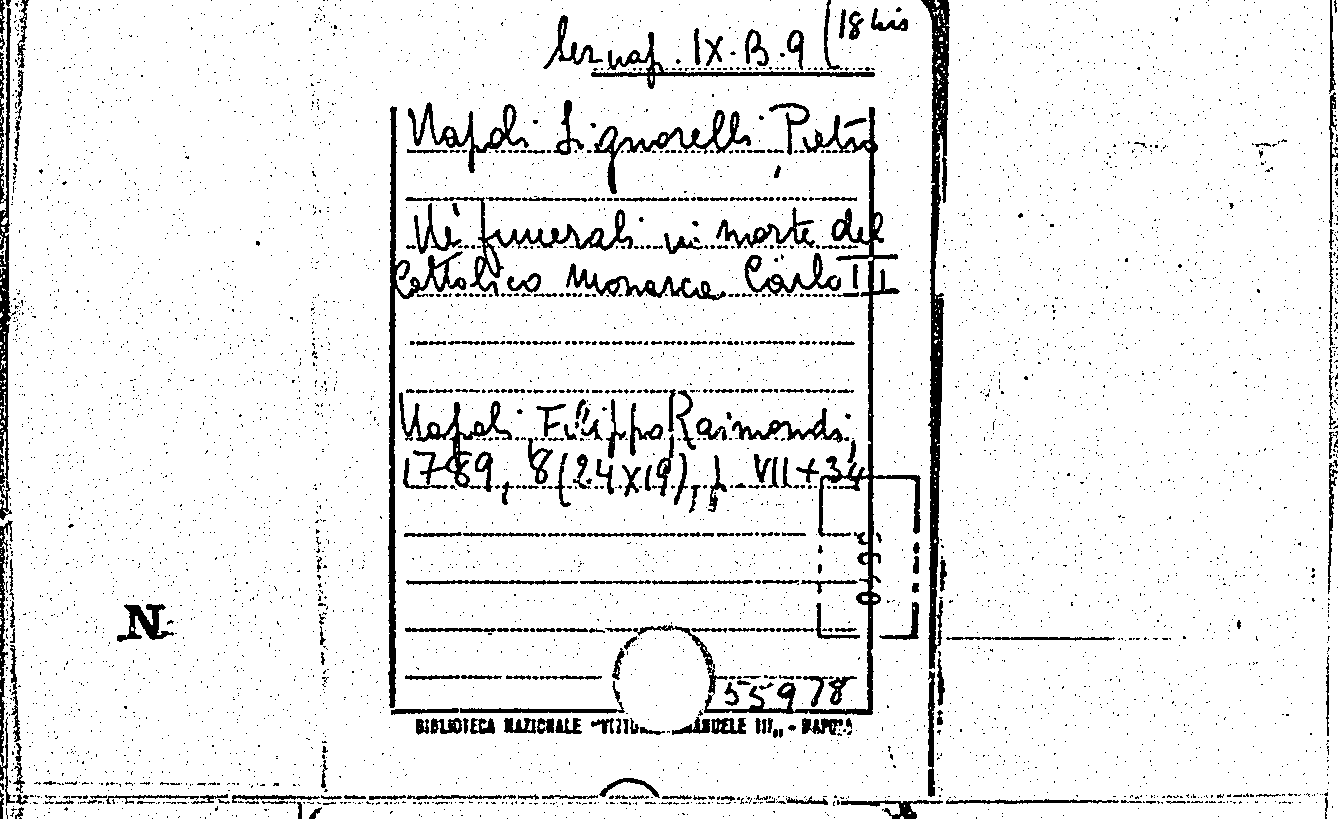 Sez nap. IX.B.9 (18 bis
Napoli Signorelli, Pietro
Ne' funerali in morte del
Cattolico Monarca Carlo III
Napoli Filippo Raimondi,
1789, 8 (24x19), p. VII+34
N
55978
BIBLIOTECA NAZIONALE "VITTO MANUELE III„ - NAPOLI